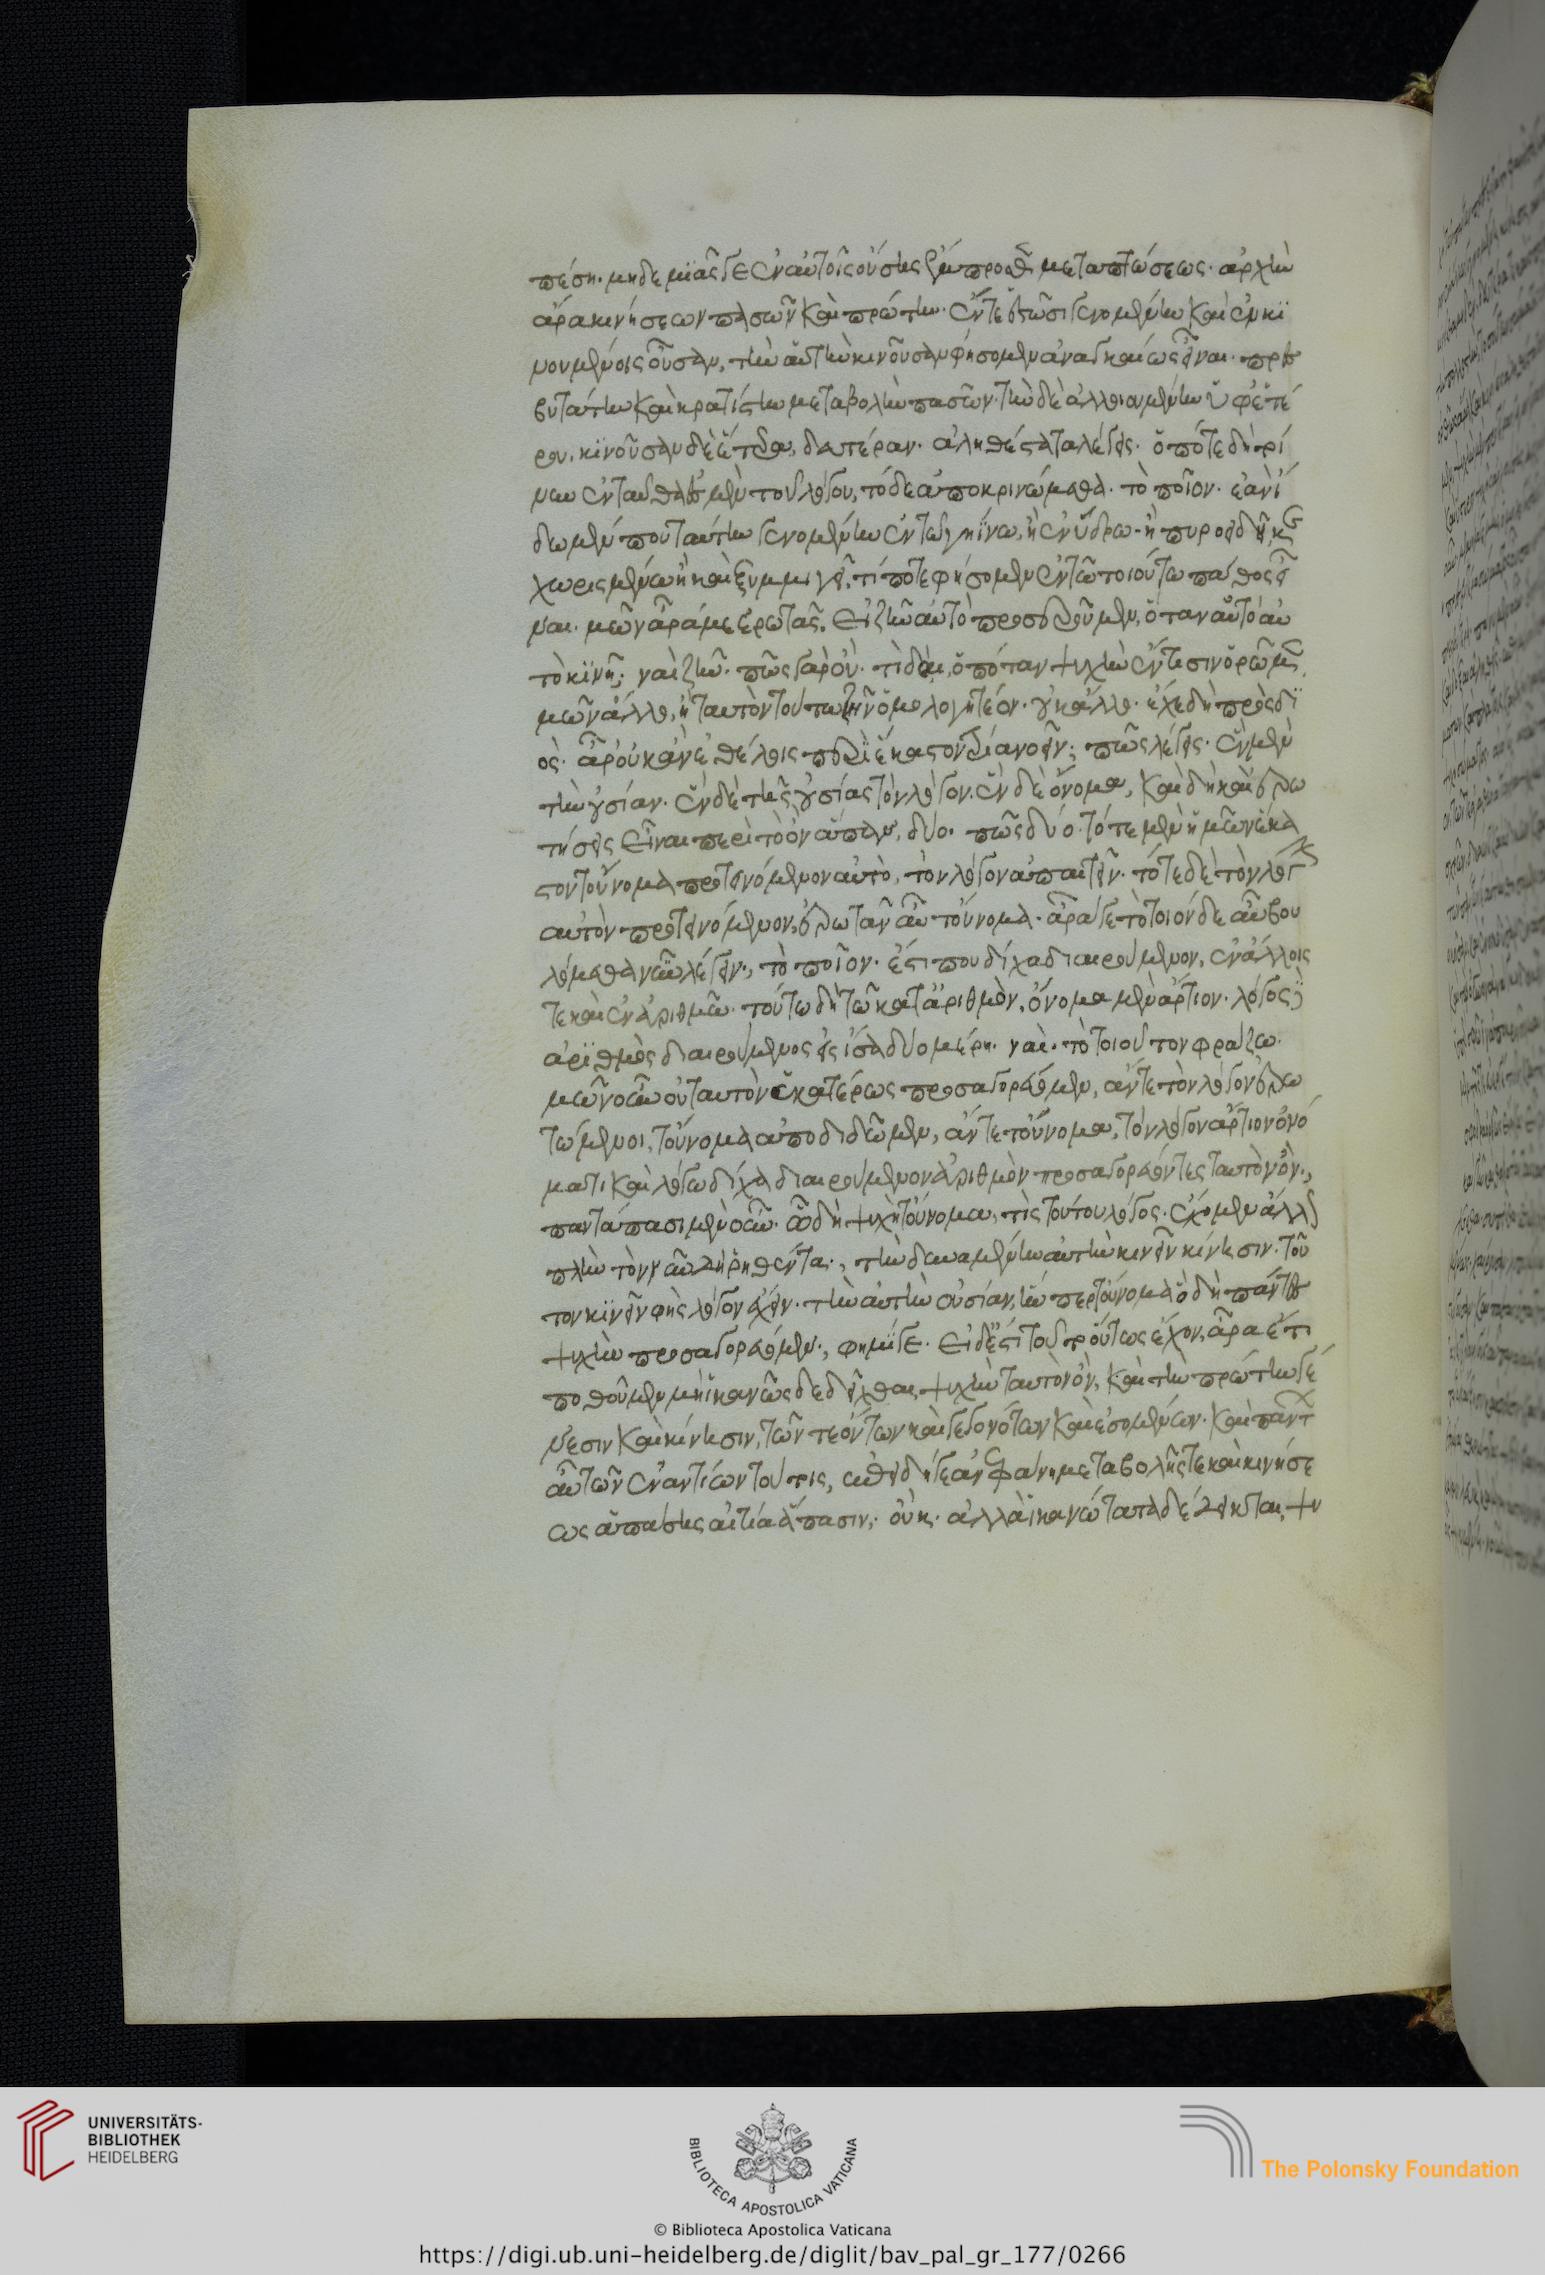 πέση. μηδεμϊᾶς γε ἐν αὐτοῖς οὔσης ἔμπροσθεν μεταπτώσεως. ἀρχὴν
ἄρα κινήσεων πασῶν καὶ πρώτην. ἔν τε ἑστῶσι γενομένην καὶ ἐν κϊ
νουμένοις οὖσαν, τὴν αὑτὴν κινοῦσαν φήσομεν ἀναγκαίως εἶναι. πρεσ
βυτάτην καὶ κρατίστην μεταβολὴν πασῶν. τὴν δὲ ἀλλοιουμένην ὑφ' ἑτέ
ρου, κϊνοῦσαν δὲ ἕτερα, δευτέραν. ἀληθέστατα λέγεις. ὁπότε δὴ τοί
νυν ἐνταῦθα ἐσμὲν τοῦ λόγου, τόδε ἀποκρινώμεθα. τὸ ποῖον. ἐὰν ἴ
δωμέν που ταύτην γενομένην ἐν τῶ γηΐνω, ἢ ἐν ὕδρω ἢ πυροειδεῖ, κε
χωρισμένω ἢ καὶ ξυμμιγεῖ, τί ποτε φήσομεν ἐν τῶ τοιούτω πάθος εἶ
ναι. μῶν ἆρά με ἐρωτᾶς. εἰ ζῆν αὐτὸ προσεροῦμεν, ὅταν αὐτὸ αὑ
τὸ κϊνῆ; ναί. ζῆν. πῶς γὰρ οὔ. τί δαί, ὁπόταν ψυχὴν ἔν τισιν ὁρῶμεν
μῶν ἄλλο, ἢ ταυτὸν τούτω ζῆν ὁμολογητέον. οὐκ ἄλλο. ἔχε δὴ πρὸς δϊ
ός. ἆρ' οὐκ ἂν ἐθέλοις περὶ ἕκαστον τρία νοεῖν; πῶς λέγεις. ἓν μὲν
τὴν οὐσίαν. ἓν δὲ τῆς οὐσίας τὸν λόγον. ἓν δὲ ὄνομα, καὶ δὴ καὶ ἐρω
τήσεις εἶναι περὶ τὸ ὂν ἅπαν, δύο. πῶς δύο. τότε μὲν ἡμῶν ἕκα
στον τοὔνομα προτεινόμενον αὐτὸ, τὸν λόγον ἀπαιτεῖν. τότε δὲ τὸν λόγον
αὐτὸν προτεινόμενον, ἐρωτᾶν αὖ τοὔνομα. ἆρά γε τὸ τοιόνδε αὖ βου
λόμεθα νῦν λέγειν., τὸ ποῖον. ἔστι που δίχα διαιρούμενον, ἐν ἄλλοις
τε καὶ ἐν ἀριθμῶ. τούτω δὴ τῶ κατ' ἀριθμὸν, ὄνομα μὲν ἄρτιον. λόγος δὲ
ἀρϊθμὸς διαιρούμενος εἰς ἴσα δύο μέρη. ναί. τὸ τοιοῦτον φράζω.
μῶν οὖν οὐ ταυτὸν ἑκατέρως προσαγορεύομεν, ἄν τε τὸν λόγον ἐρω
τώμενοι, τοὔνομα ἀποδιδῶμεν, ἄν τε τοὔνομα, τὸν λόγον ἄρτιον ὀνό
ματι καὶ λόγω δίχα διαιρούμενον ἀριθμὸν προσαγορεύοντες ταυτὸν ὄν.,
παντάπασι μὲν οὖν. ὧ δὴ ψυχὴ τοὔνομα, τίς τούτου λόγος. ἔχομεν ἄλλον
πλὴν τὸν νῦν δὴ ῥηθέντα., τὴν δυναμένην αὐτὴν κινεῖν κίνησιν. τοῦ
τον κϊνεῖν φὴς λόγον ἔχειν. τὴν αὐτὴν οὐσίαν, ἥνπερ τοὔνομα ὃ δὴ πάντες
ψυχὴν προσαγορεύομεν., φημί γε. εἰ δέ ἐστι τοῦθ' οὕτως ἔχον, ἆρα ἔτι
ποθοῦμεν μὴ ἱκανῶς δεδεῖχθαι, ψυχὴν ταυτὸν ὂν, καὶ τὴν πρώτην γέ
νεσιν καὶ κίνησιν, τῶν τε ὄντων καὶ γεγονότων καὶ ἐσομένων. καὶ πάντων
αὖ τῶν ἐναντίων τούτοις, ἐπειδή γε ἀνεφάνη μεταβολῆς τε καὶ κινήσε
ως ἁπάσης αἰτία ἅπασιν; οὔκ. ἀλλὰ ἱκανώτατα δέδεικται, ψυ
UNIVERSITÄTS-
BIBLIOTHEK
HEIDELBERG
BIBLIOTECA APOSTOLICA VATICANA
© Biblioteca Apostolica Vaticana
The Polonsky Foundation
https://digi.ub.uni-heidelberg.de/diglit/bav_pal_gr_177/0266